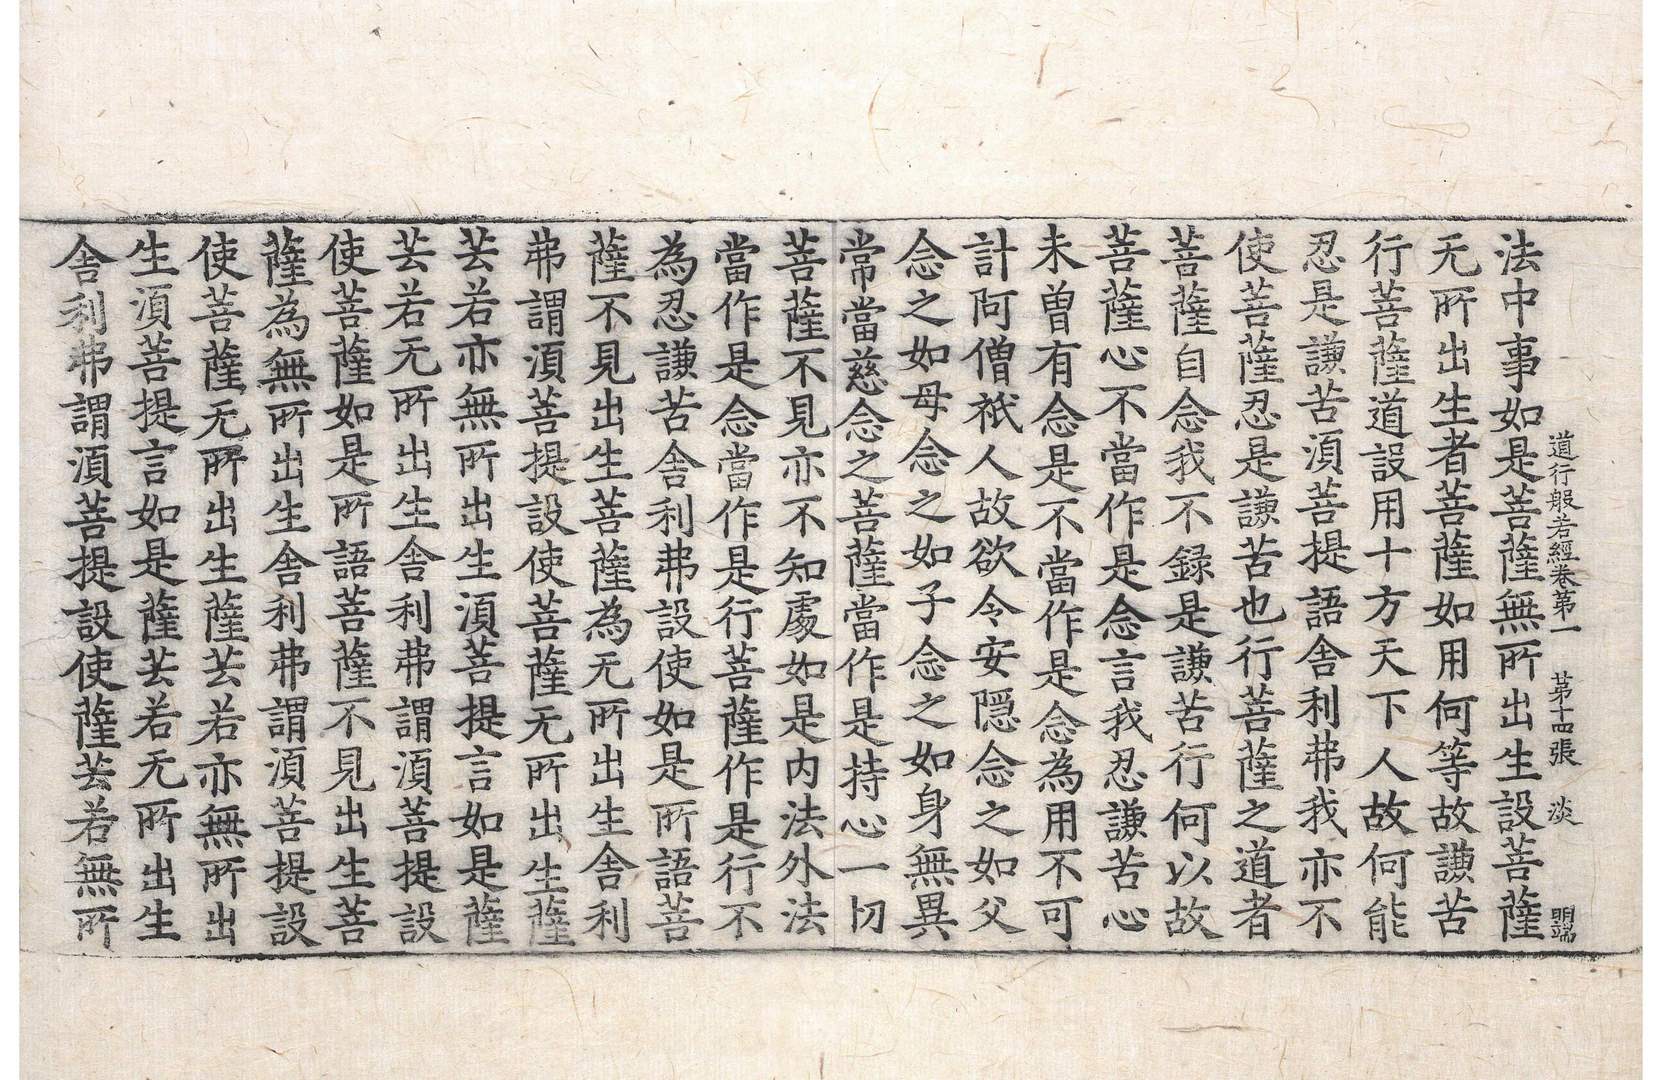 道行般若經卷第一 第十四張 淡 明端
法中事如是菩薩無所出生設菩薩
无所出生者菩薩如用何等故謙苦
行菩薩道設用十方天下人故何能
忍是謙苦湏菩提語舍利弗我亦不
使菩薩忍是謙苦也行菩薩之道者
菩薩自念我不録是謙苦行何以故
菩薩心不當作是念言我忍謙苦心
未曾有念是不當作是念為用不可
計阿僧祇人故欲令安隱念之如父
念之如母念之如子念之如身無異
常當慈念之菩薩當作是持心一切
菩薩不見亦不知處如是内法外法
當作是念當作是行菩薩作是行不
為忍謙苦舍利弗設使如是所語菩
薩不見出生菩薩為无所出生舍利
弗謂湏菩提設使菩薩无所出生薩
芸若亦無所出生湏菩提言如是薩
芸若无所出生舍利弗謂湏菩提設
使菩薩如是所語菩薩不見出生菩
薩為無所出生舍利弗謂湏菩提設
使菩薩无所出生薩芸若亦無所出
生湏菩提言如是薩芸若无所出生
舍利弗謂湏菩提設使薩芸若無所